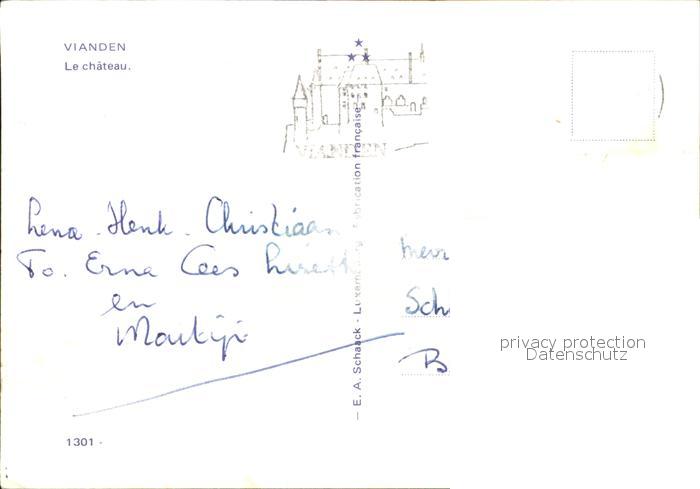 VIANDEN
Le château.
VIANDEN
Lena - Henk - Christiaan
To. Erna Cees
en
mevr
Sch
B
privacy protection
Datenschutz
— E. A. Schaack - Luxembourg Fabrication française
1301 -